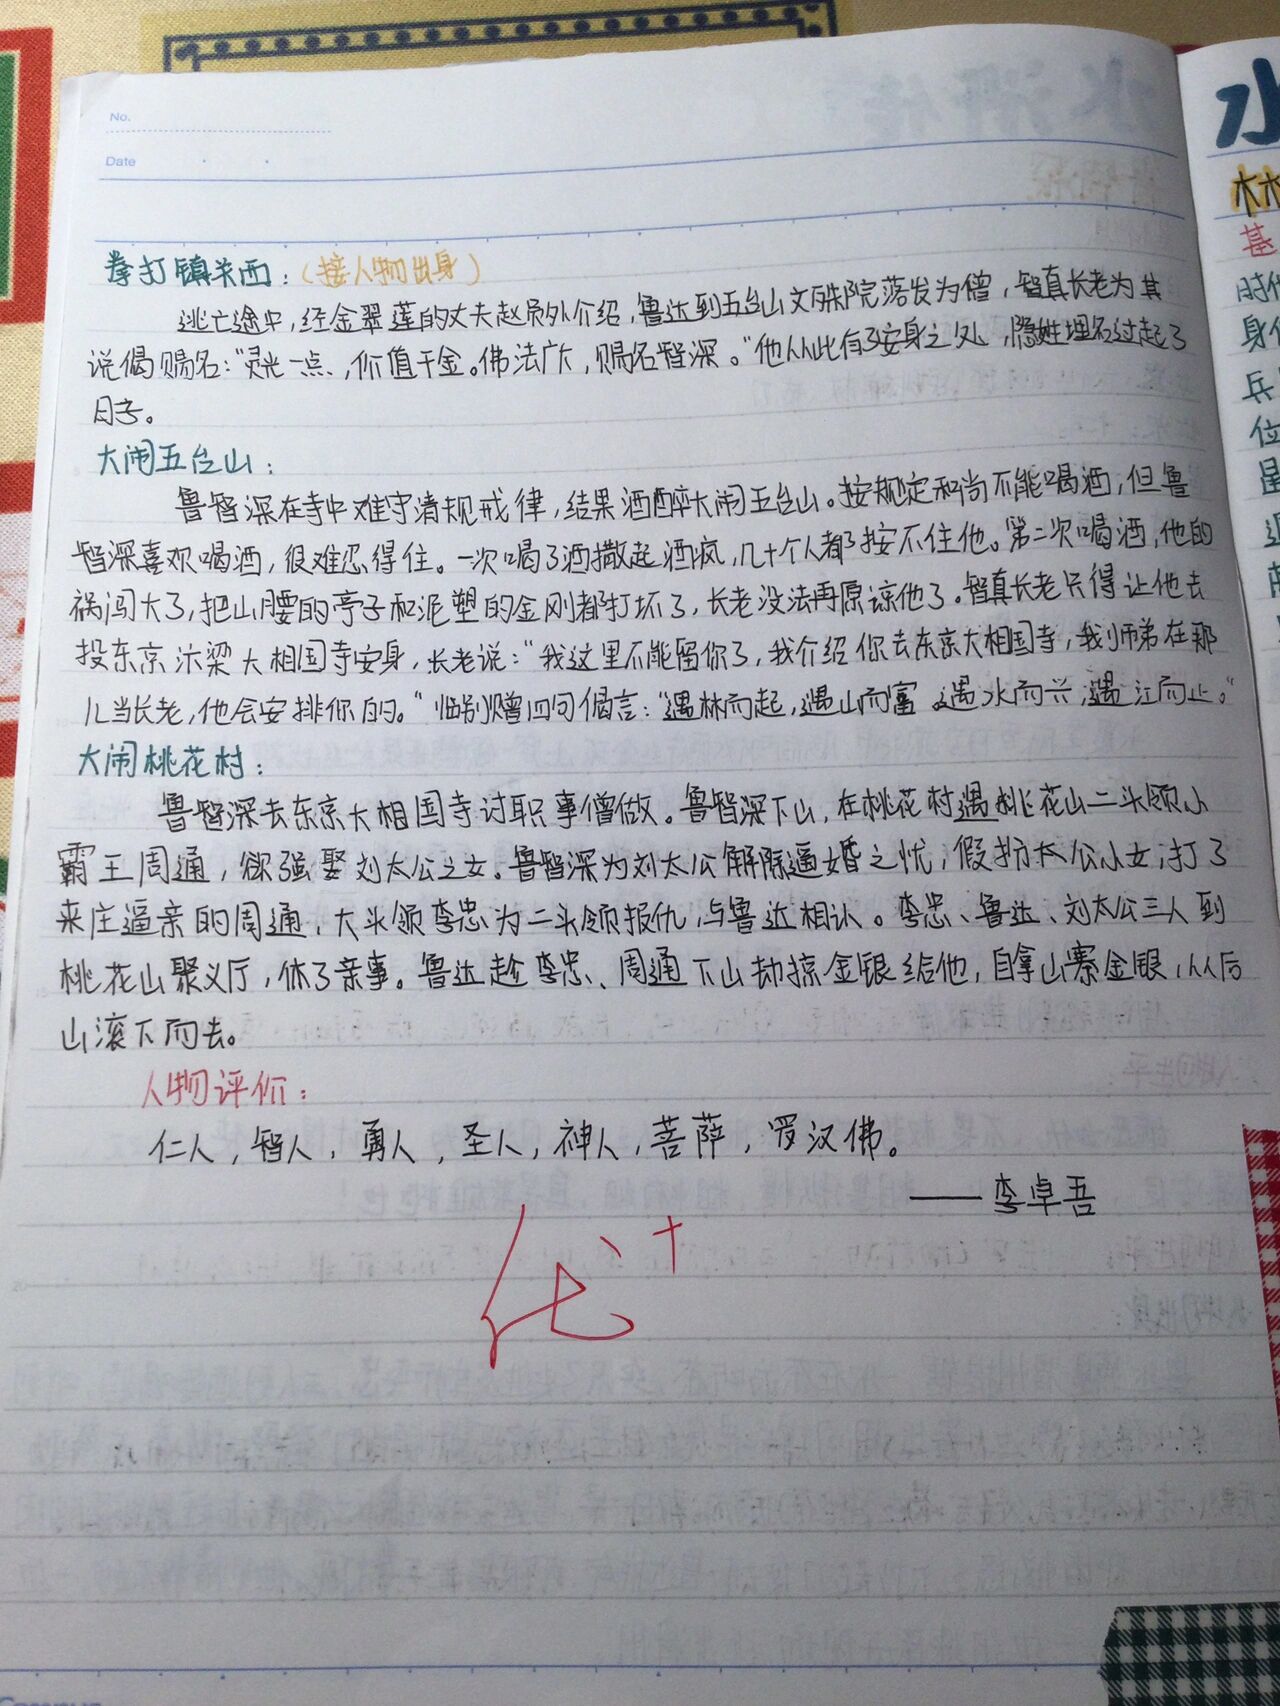 No.
Date
拳打镇关西：（接人物出身）
逃亡途中，经金翠莲的丈夫赵员外介绍，鲁达到五台山文殊院落发为僧，智真长老为其
说偈赐名：“灵光一点，价值千金。佛法广大，赐名智深。”他从此有了安身之处，隐姓埋名过起了
日子。
大闹五台山：
鲁智深在寺中难守清规戒律，结果酒醉大闹五台山。按规定和尚不能喝酒，但鲁
智深喜欢喝酒，很难忍得住。一次喝了酒撒起酒疯，几十个人都按不住他。第二次喝酒，他的
祸闯大了，把山腰的亭子和泥塑的金刚都打坏了，长老没法再原谅他了。智真长老只得让他去
投东京汴梁大相国寺安身，长老说：“我这里不能留你了，我介绍你去东京大相国寺，我师弟在那
儿当长老，他会安排你的。”临别赠四句偈言：“遇林而起，遇山而富，遇水而兴，遇江而止。”
大闹桃花村：
鲁智深去东京大相国寺讨职事僧做。鲁智深下山，在桃花村遇桃花山二头领小
霸王周通，欲强娶刘太公之女。鲁智深为刘太公解除逼婚之忧，假扮太公小女，打了
来庄逼亲的周通，大头领李忠为二头领报仇，与鲁达相认。李忠、鲁达、刘太公三人到
桃花山聚义厅，休了亲事。鲁达趁李忠、周通下山劫掠金银给他，自拿山寨金银，从后
山滚下而去。
人物评价：
仁人，智人，勇人，圣人，神人，菩萨，罗汉佛。
——李卓吾
优+
水
林
基
时代
身
兵
位
星